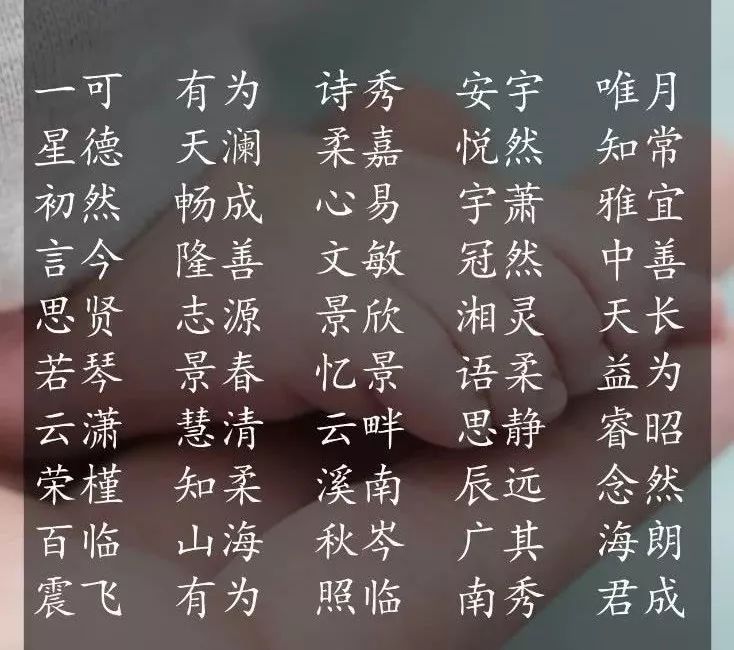 一可 有为 诗秀 安宇 唯月
星德 天澜 柔嘉 悦然 知常
初然 畅成 心易 宇萧 雅宜
言今 隆善 文敏 冠然 中善
思贤 志源 景欣 湘灵 天长
若琴 景春 忆景 语柔 益为
云潇 慧清 云畔 思静 睿昭
荣槿 知柔 溪南 辰远 念然
百临 山海 秋岑 广其 海朗
震飞 有为 照临 南秀 君成